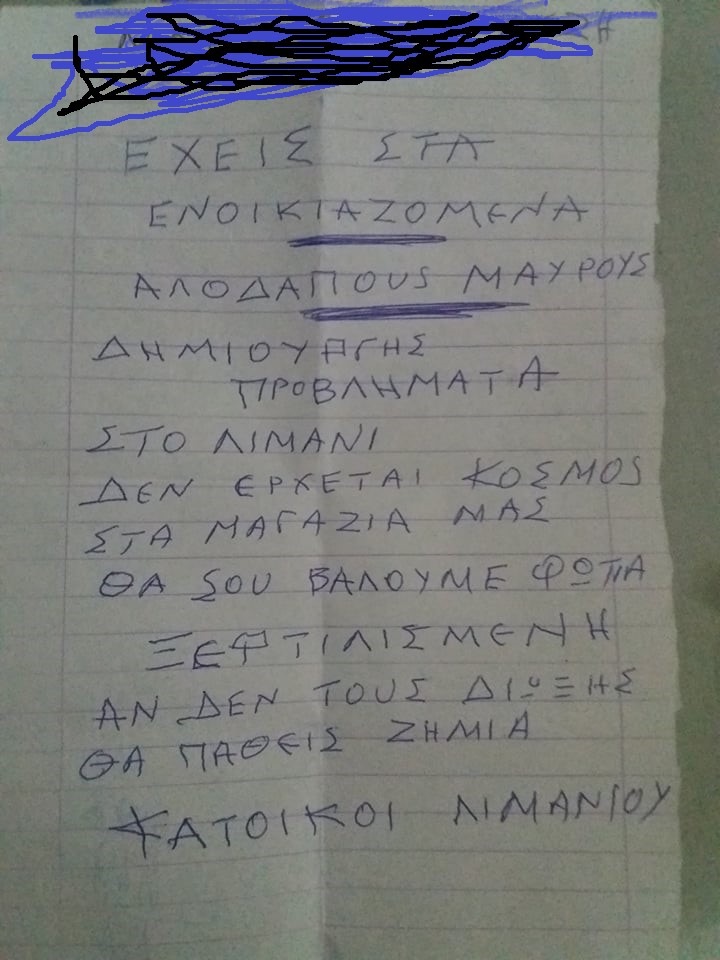 ΕΧΕΙΣ ΣΤΑ
ΕΝΟΙΚΙΑΖΟΜΕΝΑ
ΑΛΟΔΑΠΟUS ΜΑΥΡΟΥΣ
ΔΗΜΙΟΥΡΓΗΣ
ΠΡΟΒΛΗΜΑΤΑ
ΣΤΟ ΛΙΜΑΝΙ
ΔΕΝ ΕΡΧΕΤΑΙ ΚΟΣΜΟS
ΣΤΑ ΜΑΓΑΖΙΑ ΜΑΣ
ΘΑ ΣΟU ΒΑΛΟΥΜΕ ΦΩΠΑ
ΞΕΦΤΙΛΙΣΜΕΝΗ
ΑΝ ΔΕΝ ΤΟUΣ ΔΙΩΞΗΣ
ΘΑ ΠΑΘΕΙΣ ΖΗΜΙΑ
ΚΑΤΟΙΚΟΙ ΛΙΜΑΝΙΟΥ